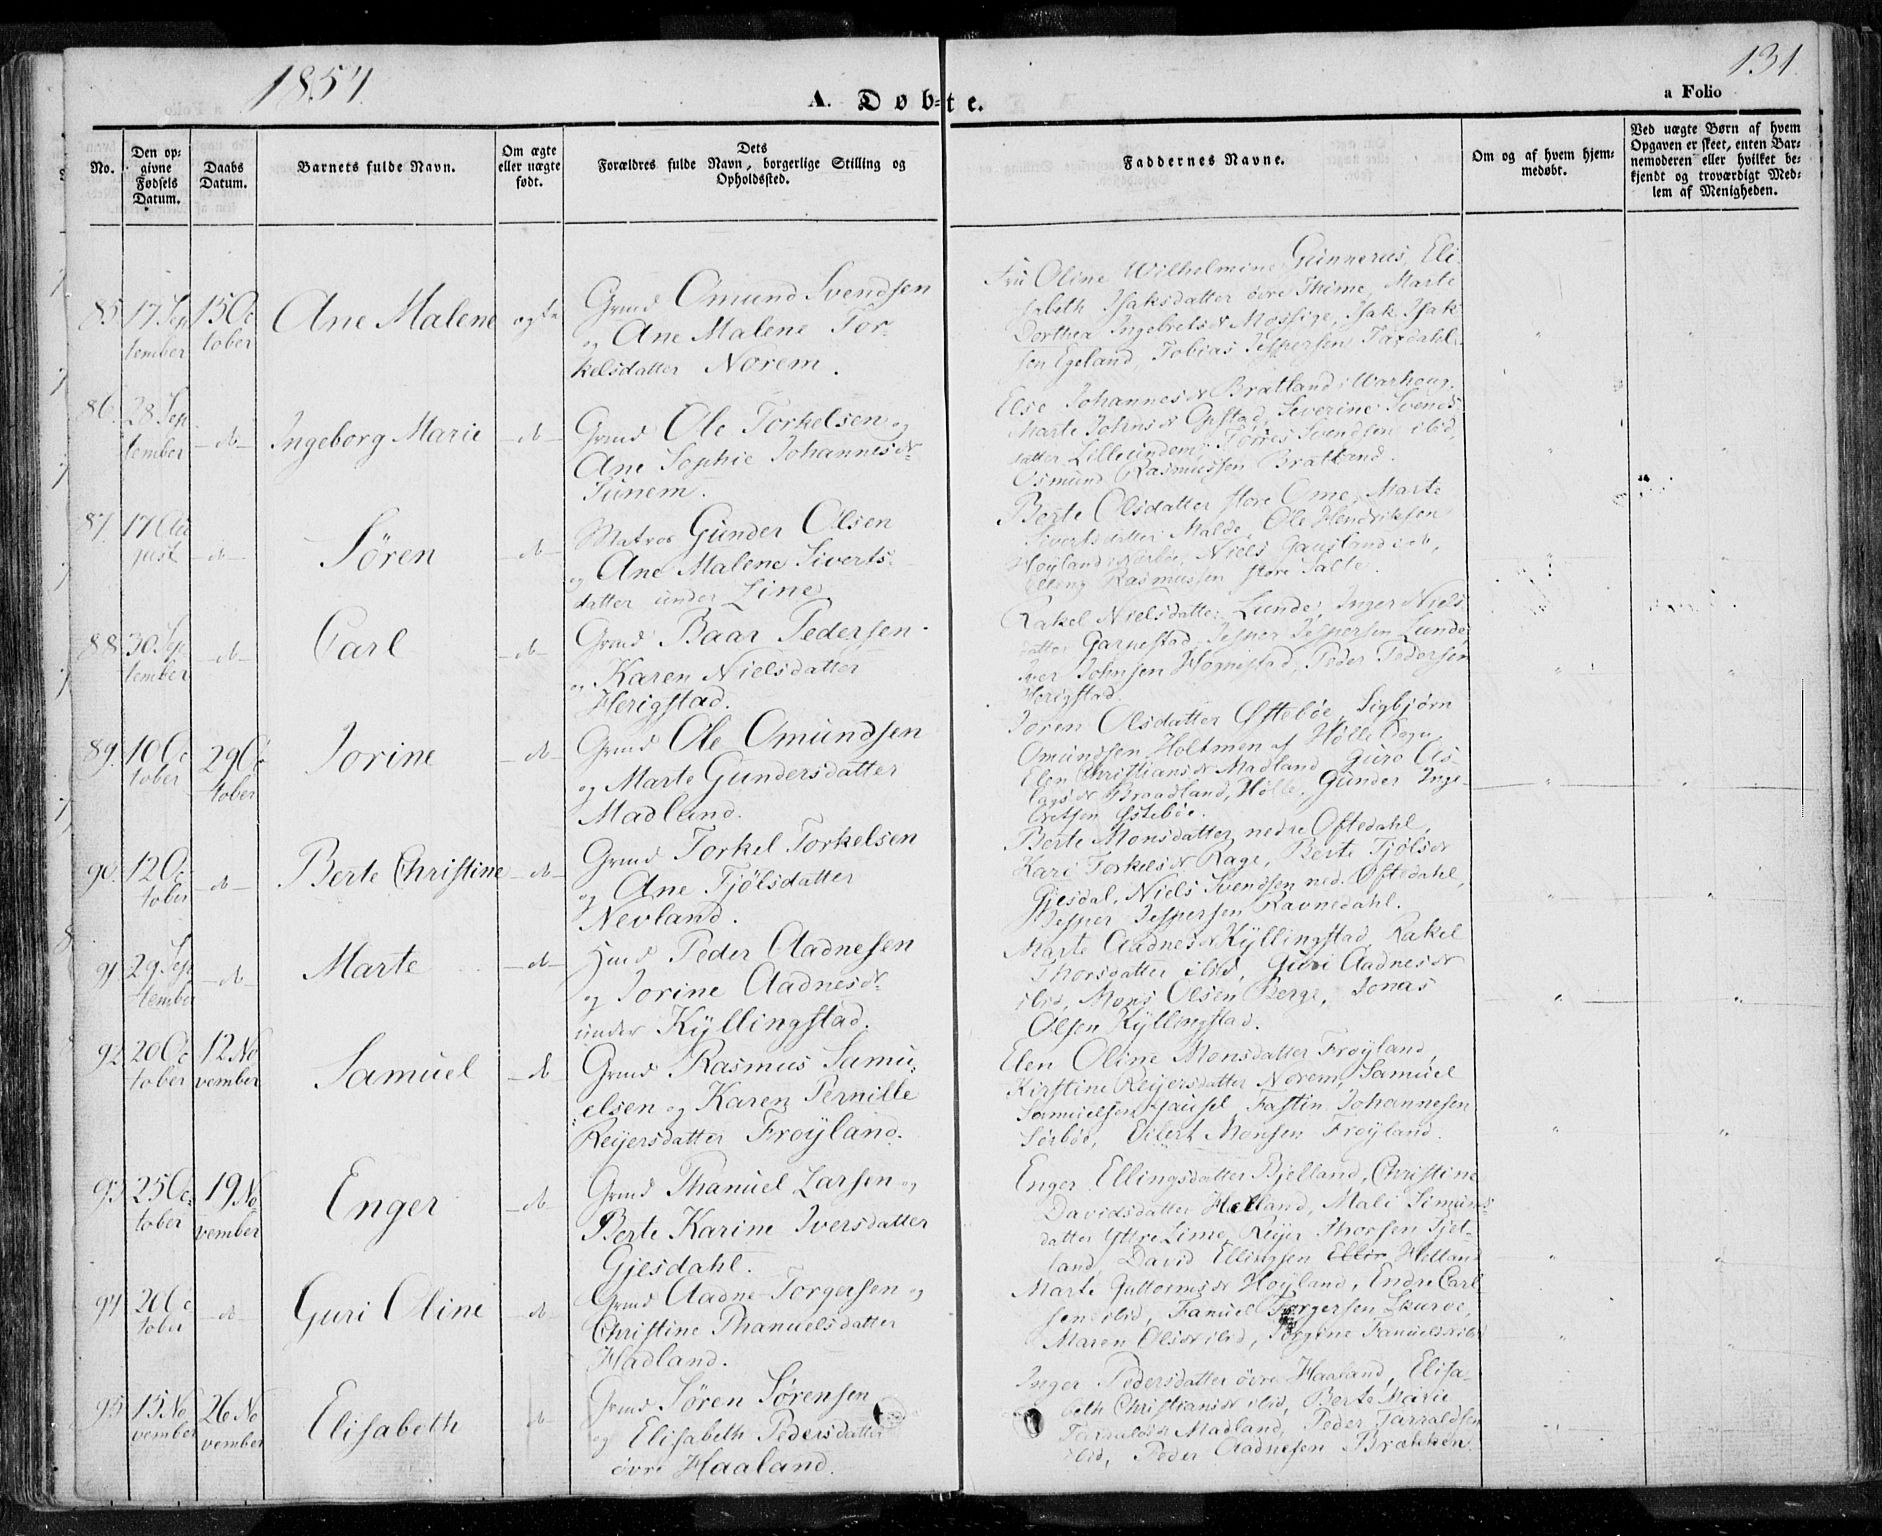 1854
131.
A. Døb-te.
a Folio
No.
Den op-
givne
Fødsels
Datum.
Daabs
Datum.
Barnets fulde Navn.
Om ægte
eller uægte
født.
Dets
Forældres fulde Navn, borgerlige Stilling og
Opholdssted.
Faddernes Navne.
Om og af hvem hjem-
medøbt.
Ved uægte Børn af hvem
Opgaven er skeet, enten Bar-
nemoderen eller hvilket be-
kjendt og troværdigt Med-
lem af Menigheden.
85. 17 Sep
tember
15 Oc
tober
Ane Malene
ægte
Grmd Omund Svendsen
og Ane Malene Tor-
kelsdatter Norem.
Fru Oline Wilhelmine Gunnerus, Eli-
sabeth Isaksdatter øvre Thime, Marte
Dorthea Ingebretsdr Mossige, Isak Isak
sen Egeland, Tobias Jespersen Taxdahl.
86. 28 Sep
tember
dr
Ingeborg Marie
dr
Grmd Ole Torkelsen og
Ane Sophie Johannesdr
Tunem.
Else Johannesdr Bratland i Warhoug,
Marte Johnsdr Opstad, Severine Svends
datter Lilleundem, Torres Svendsen ibid,
Osmund Rasmussen Bratland.
87. 17 Au
gust
dr
Søren
dr
Matros Gunder Olsen
og Ane Malene Siverts-
datter under Line
Berte Olsdatter store Ome, Marte
Sivertsdatter Malde, Ole Hendriksen
Høyland i Nærbøe, Niels Gausland
Elling Rasmussen store Salte.
88. 30 Sep
tember
dr
Carl
dr
Grmd Baar Pedersen
og Karen Nielsdatter
Herigstad.
Rakel Nielsdatter Lunde, Inger Niels
datter Garnestad, Jesper Jespersen Lunde,
Iver Johnsen Hognestad, Peder Pedersen
Herigstad
89. 10 Oc
tober
29 Oc
tober
Jorine
dr
Grmd Ole Omundsen
og Marte Gundersdatter
Madland.
Joren Olsdatter Østebøe, Sigbjørn
Omundsen Holtmen af Hølle Sogn
Elen Christiansdr Madland, Guro As-
lagsdr Braadland, Hølle, Gunder Inge-
bretsen Østebøe.
90. 12 Oc
tober
dr
Berte Christine
dr
Grmd Torkel Torkelsen
og Ane Tjølsdatter
Nevland.
Berte Monsdatter nedre Oftedahl,
Kari Torkelsdr Rage, Berte Tjølsdr
Gjesdal, Niels Svendsen ned. Oftedahl,
Jesper Jespersen Ravnedahl.
91 29 Sep
tember
dr
Marte
dr
Huusmd Peder Aadnesen
og Jorine Aadnesdr
under Kyllingstad.
Marte Aadnesdr Kyllingstad, Rakel
Thorsdatter ibid, Guri Aadnesdr
ibid, Mons Olsen Berge, Jonas
Olsen Kyllingstad.
92. 20 Oc
tober
12 No
vember
Samuel
dr
Grmd Rasmus Samu-
elsen og Karen Pernille
Reijersdatter Frøyland.
Elen Oline Monsdatter Frøyland,
Kirstine Reijersdatter Norem, Samuel
Samuelsen Gausel, Fastin Johannesen
Sørbøe, Eilert Monsen Frøyland.
93 25 Oc
tober
19 No
vember
Enger
dr
Grmd Thanuel Larsen og
Berte Karine Iversdatter
Gjesdahl.
Enger Ellingsdatter Bjelland, Christine
Davidsdatter Helland, Mali Simunds
datter Ytre Lime, Reijer Thorsen Tjøt-
land, David Ellingsen Helland
94 20 Oc
tober
dr
Guri Oline
dr
Grmd Aadne Torgersen og
Christine Thanuelsdatter
Hadland.
Marte Guttormsdr Høyland, Endre Carl
sen ibid, Fanuel Torgersen Skurve,
Maren Olsdr ibid, Torgine Fanuelsdr ibid
95 15 No
vember
26 No
vember
Elisabeth
dr
Grmd Søren Sørensen
og Elisabeth Pedersdatter
øvre Haaland.
Inger Pedersdatter øvre Haaland, Elisa-
beth Christiansdr ibid, Berte Marie
Tarraldsdr Madland, Peder Tarraldsen
ibid, Peder Aadnesen Brækken.